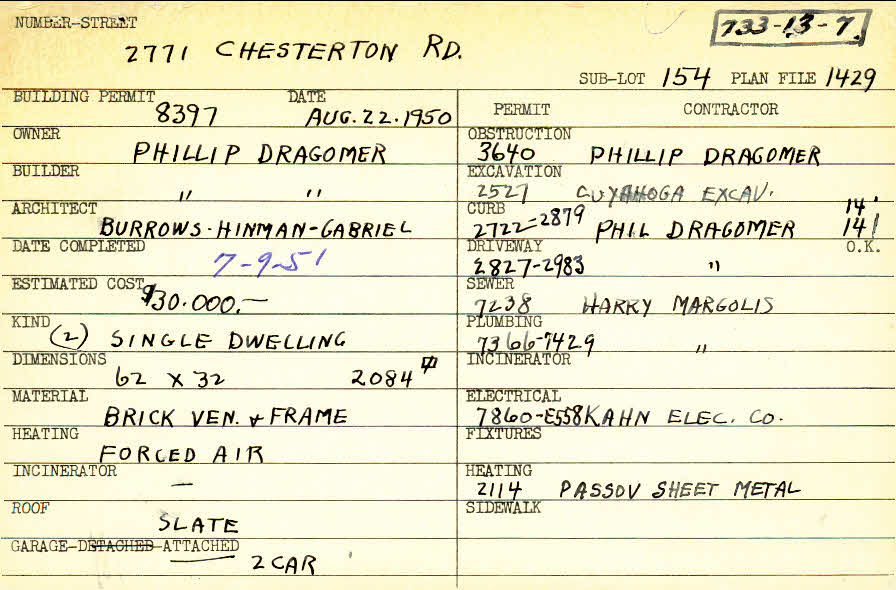 NUMBER-STREET
733-13-7
2771 CHESTERTON RD.
SUB-LOT 154 PLAN FILE 1429
BUILDING PERMIT DATE
8397 AUG. 22. 1950
OWNER
PHILLIP DRAGOMER
BUILDER
" "
ARCHITECT
BURROWS-HINMAN-GABRIEL
DATE COMPLETED
7-9-51
ESTIMATED COST
$30.000.—
KIND
(2) SINGLE DWELLING
DIMENSIONS
62 X 32 2084
MATERIAL
BRICK VEN. & FRAME
HEATING
FORCED AIR
INCINERATOR
—
ROOF
SLATE
GARAGE-DETACHED-ATTACHED
2 CAR
PERMIT CONTRACTOR
OBSTRUCTION
3640 PHILLIP DRAGOMER
EXCAVATION
2527 CUYAHOGA EXCAV.
CURB 14'
2722-2879 PHIL DRAGOMER 14'
DRIVEWAY O.K.
2827-2983 "
SEWER
7238 HARRY MARGOLIS
PLUMBING
7366-7429 "
INCINERATOR
ELECTRICAL
7860-E558 KAHN ELEC. CO.
FIXTURES
HEATING
2114 PASSOV SHEET METAL
SIDEWALK